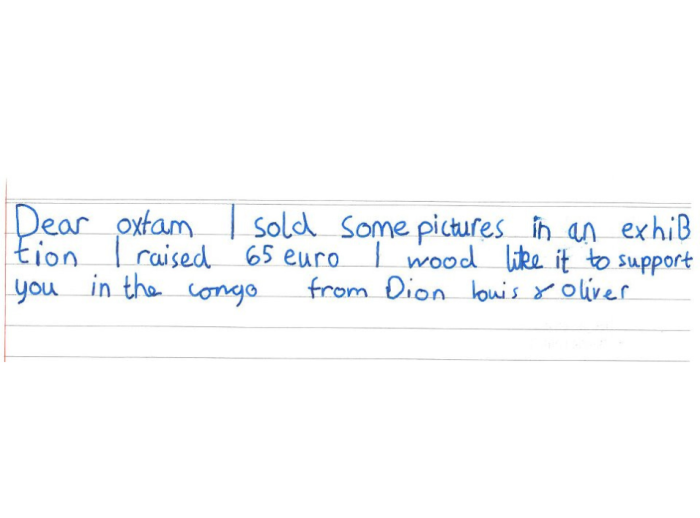 Dear oxfam I sold some pictures in an exhiB
tion I raised 65 euro I wood like it to support
you in the congo from Dion louis & oliver